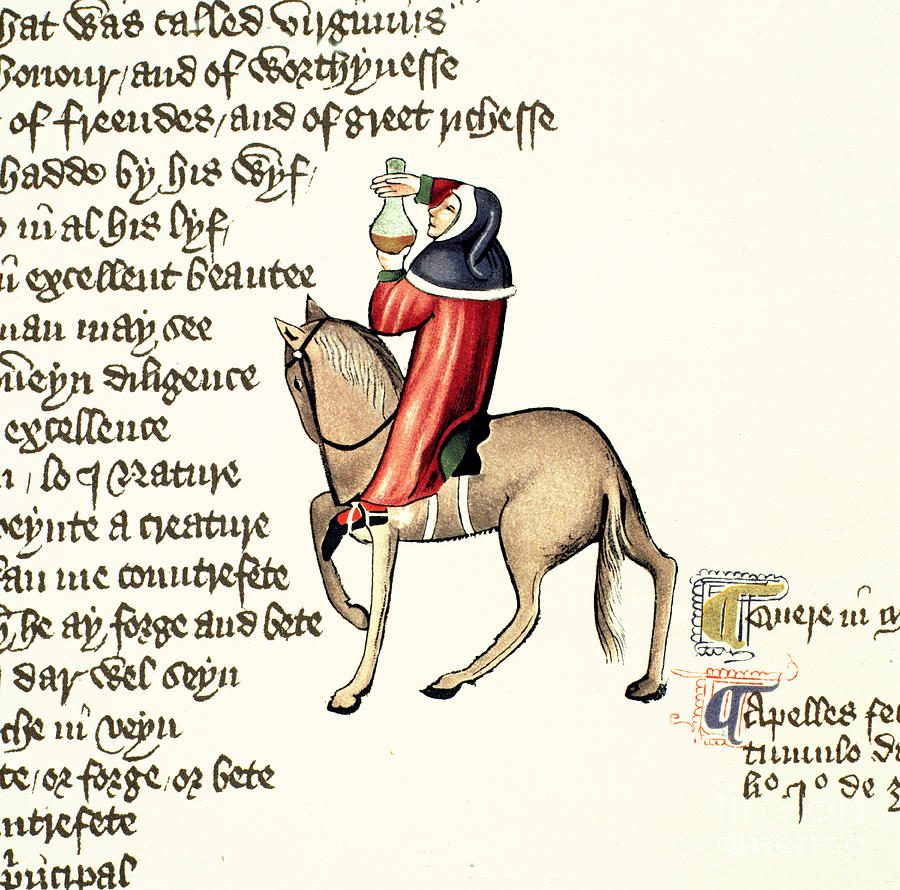 that was called Virginius
honour / and of worthynesse
of freendes / and of greet richesse
hadde by his wyf /
in al his lyf /
in excellent beautee
man may see
souereyn diligence
excellence
lo I Nature
peynte a creature
kan me countrefete
he ay forge and bete
dar wel seyn
che in veyn
te / or forge / or bete
ntrefete
principal
Quere in
Apelles fe
tumulo d
li° i° de